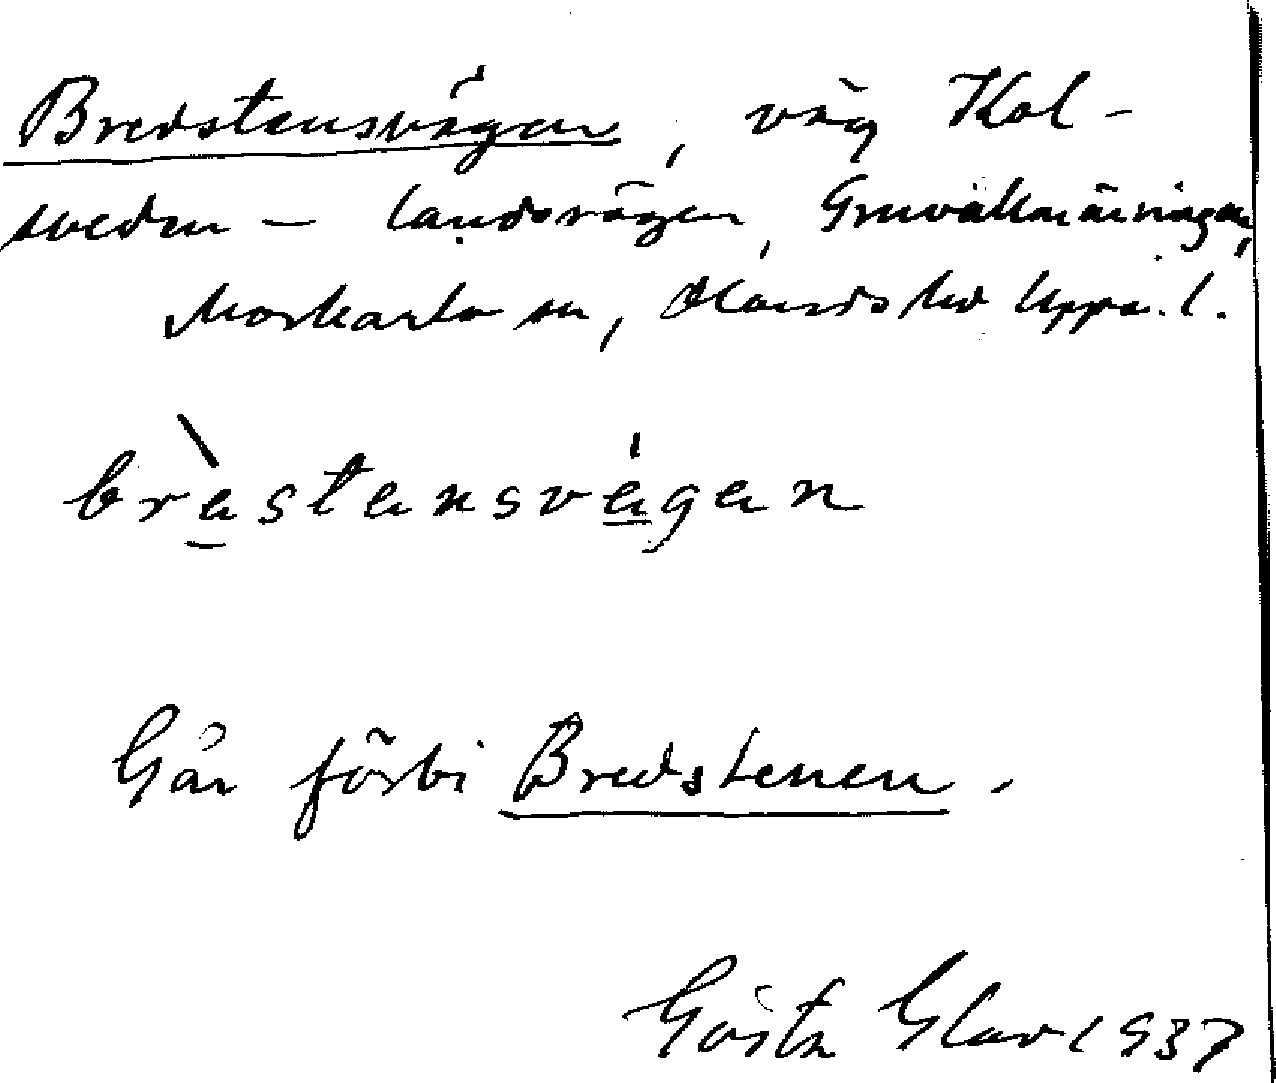 Bredstensvägen, väg Kol-
sveden – landsvägen, Gruvallmänningen,
Morkarla sn, Olands hd Upps. l.
brèstensvägen
Går förbi Bredstenen.
Gösta Glav 1937